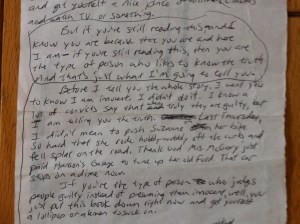 and get yourself a nice juice
watch TV or something.
But if you're still reading this, and I
know you are because then you are and here
I am - if you're still reading this, then you are
the type of person who likes to know the truth
And that's just what I'm going to tell you.
Before I tell you the whole story, I want you
to know I am innocent. I didn't do it. I know a
lot of convicts say that truly they are guilty, but
I am telling you the truth. Last Thursday,
I didn't mean to push Suzanne her
So hard that she rode off the curb and
fell splat on the road. Thank God Mrs. McGrory just
paid Hanson's Garage to tune up her old Ford. That car
stops on a dime now.
If you're the type of person who judges
people guilty instead of presuming them innocent, well, you
just put this book down right now and get yourself
a lollipop or a lemon to suck on.